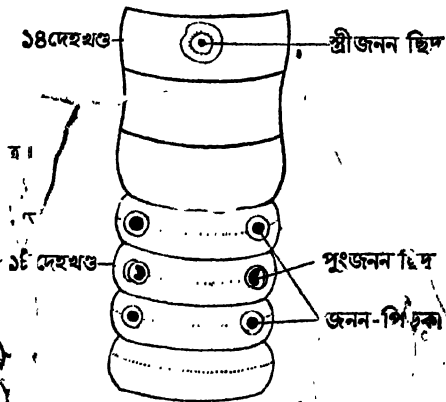 ১৪ দেহখণ্ড
স্ত্রী জনন ছিদ্র
ত্র।
১৮ দেহখণ্ড
পুংজনন ছিদ্র
জনন-পিড়কা